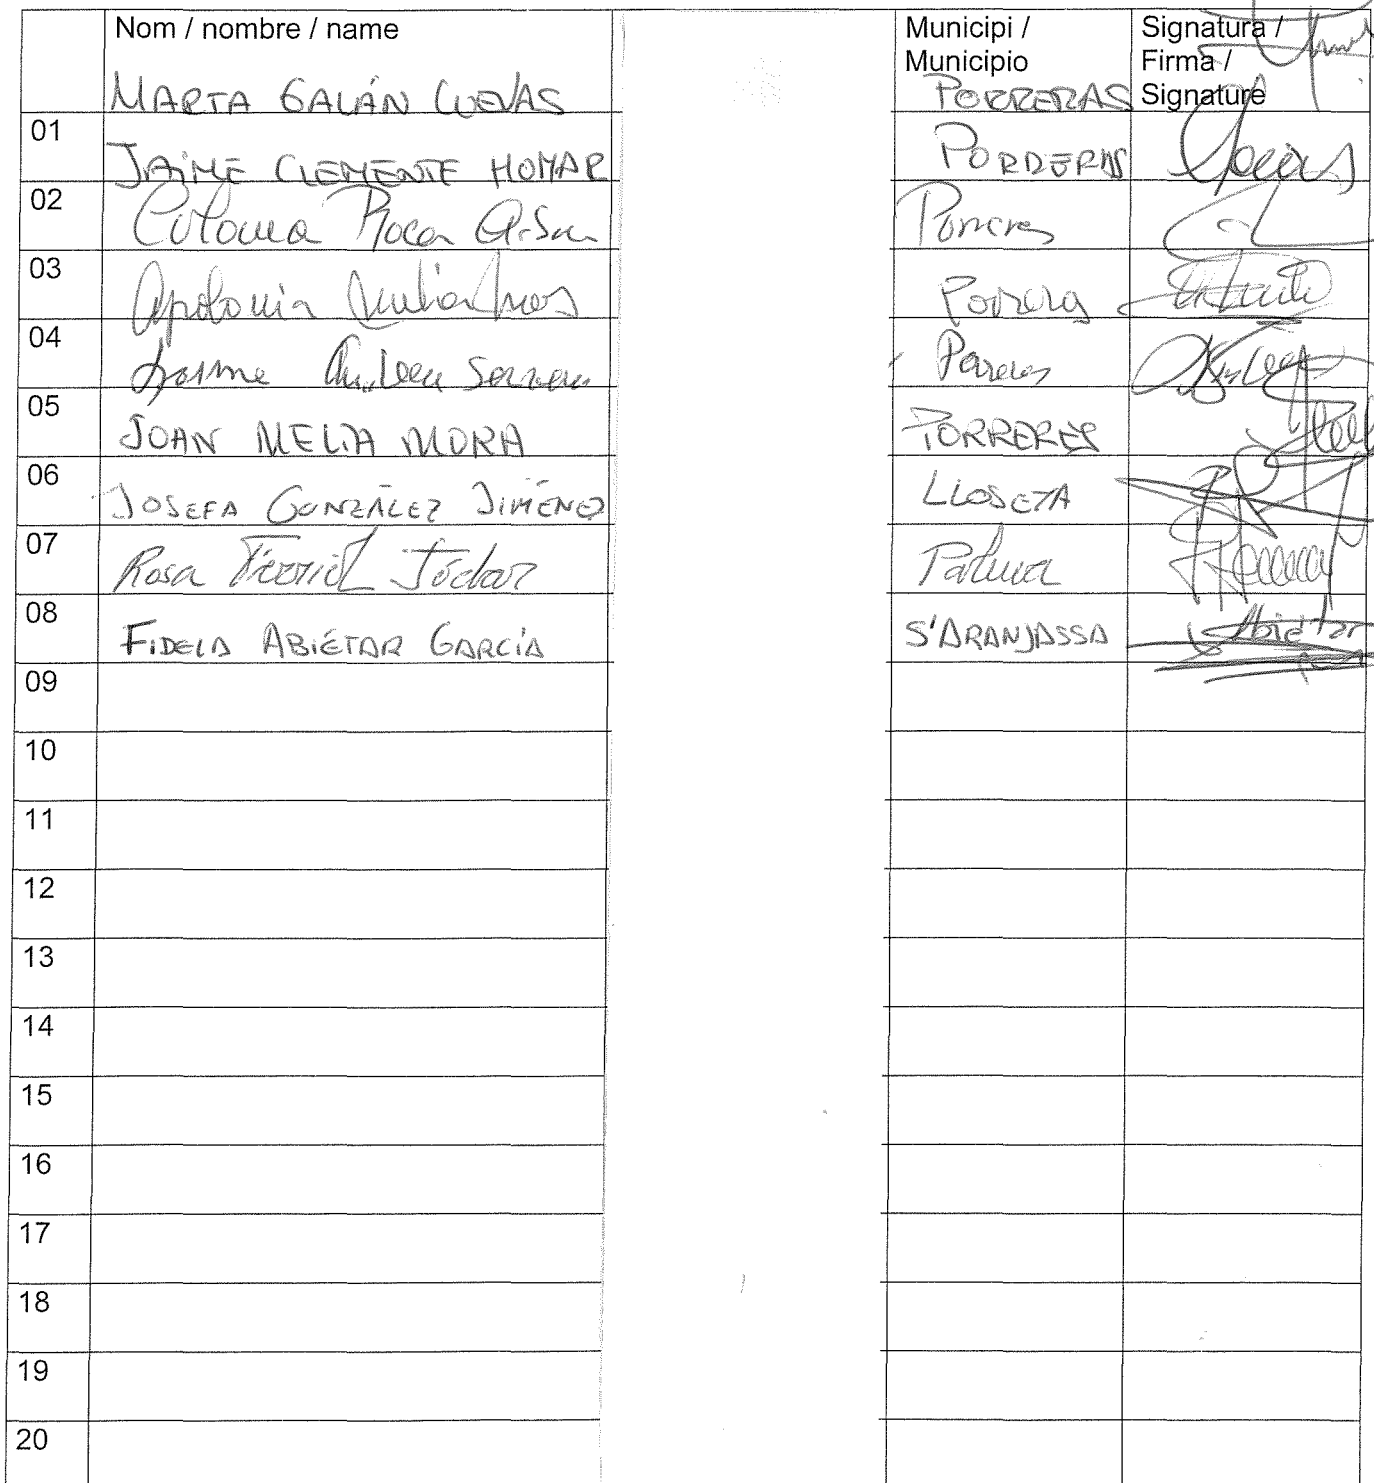 Nom / nombre / name Municipi / Signatura /
Municipio Firma /
MARTA GALÁN CUEVAS PORRERAS Signature
01 JAIME CLEMENTE HOMAR PORRERAS
02 Coloma Roca Porreres
03 Apolonia Porreres
04 Jaume Porreres
05 JOAN MELIA MORA PORRERES
06 JOSEFA GONZÁLEZ JIMÉNEZ LLOSETA
07 Rosa Ferriol Jódar Palma
08 FIDELA ABIÉTAR GARCÍA S'ARANJASSA Abiétar
09
10
11
12
13
14
15
16
17
18
19
20